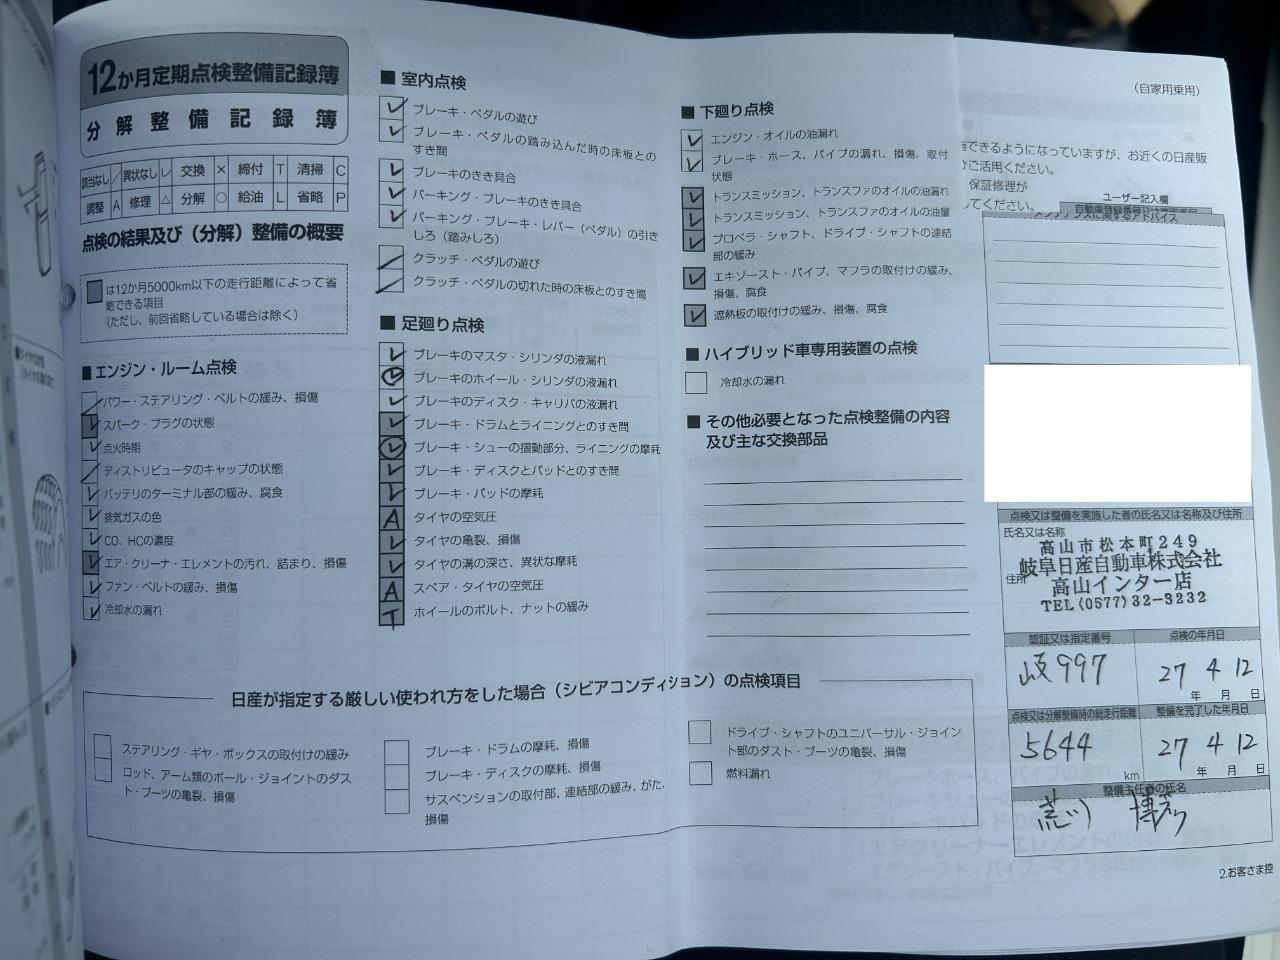 12か月定期点検整備記録簿
分解整備記録簿
該当なし ／ 異状なし レ 交換 × 締付 T 清掃 C
調整 A 修理 △ 分解 ○ 給油 L 省略 P
点検の結果及び（分解）整備の概要
は12か月5000km以下の走行距離によって省
略できる項目
（ただし、前回省略している場合は除く）
■ エンジン・ルーム点検
パワー・ステアリング・ベルトの緩み、損傷
スパーク・プラグの状態
点火時期
ディストリビュータのキャップの状態
バッテリのターミナル部の緩み、腐食
排気ガスの色
CO、HCの濃度
エア・クリーナ・エレメントの汚れ、詰まり、損傷
ファン・ベルトの緩み、損傷
冷却水の漏れ
■ 室内点検
ブレーキ・ペダルの遊び
ブレーキ・ペダルの踏み込んだ時の床板との
すき間
ブレーキのきき具合
パーキング・ブレーキのきき具合
パーキング・ブレーキ・レバー（ペダル）の引き
しろ（踏みしろ）
クラッチ・ペダルの遊び
クラッチ・ペダルの切れた時の床板とのすき間
■ 足廻り点検
ブレーキのマスタ・シリンダの液漏れ
ブレーキのホイール・シリンダの液漏れ
ブレーキのディスク・キャリパの液漏れ
ブレーキ・ドラムとライニングとのすき間
ブレーキ・シューの摺動部分、ライニングの摩耗
ブレーキ・ディスクとパッドとのすき間
ブレーキ・パッドの摩耗
A タイヤの空気圧
タイヤの亀裂、損傷
タイヤの溝の深さ、異状な摩耗
A スペア・タイヤの空気圧
T ホイールのボルト、ナットの緩み
■ 下廻り点検
エンジン・オイルの油漏れ
ブレーキ・ホース、パイプの漏れ、損傷、取付
状態
トランスミッション、トランスファのオイルの油漏れ
トランスミッション、トランスファのオイルの油量
プロペラ・シャフト、ドライブ・シャフトの連結
部の緩み
エキゾースト・パイプ、マフラの取付けの緩み、
損傷、腐食
遮熱板の取付けの緩み、損傷、腐食
■ ハイブリッド車専用装置の点検
冷却水の漏れ
■ その他必要となった点検整備の内容
及び主な交換部品
日産が指定する厳しい使われ方をした場合（シビアコンディション）の点検項目
ステアリング・ギヤ・ボックスの取付けの緩み
ロッド、アーム類のボール・ジョイントのダス
ト・ブーツの亀裂、損傷
ブレーキ・ドラムの摩耗、損傷
ブレーキ・ディスクの摩耗、損傷
サスペンションの取付部、連結部の緩み、がた、
損傷
ドライブ・シャフトのユニバーサル・ジョイン
ト部のダスト・ブーツの亀裂、損傷
燃料漏れ
（自家用乗用）
できるようになっていますが、お近くの日産販
ご活用ください。
保証修理が
してください。
ユーザー記入欄
点検又は整備を実施した者の氏名又は名称及び住所
氏名又は名称
住所
高山市松本町249
岐阜日産自動車株式会社
高山インター店
TEL(0577)32-3232
認証又は指定番号
岐997
点検の年月日
27 4 12
年 月 日
点検又は分解整備時の総走行距離
5644
km
整備を完了した年月日
27 4 12
年 月 日
整備主任者の氏名
2.お客さま控